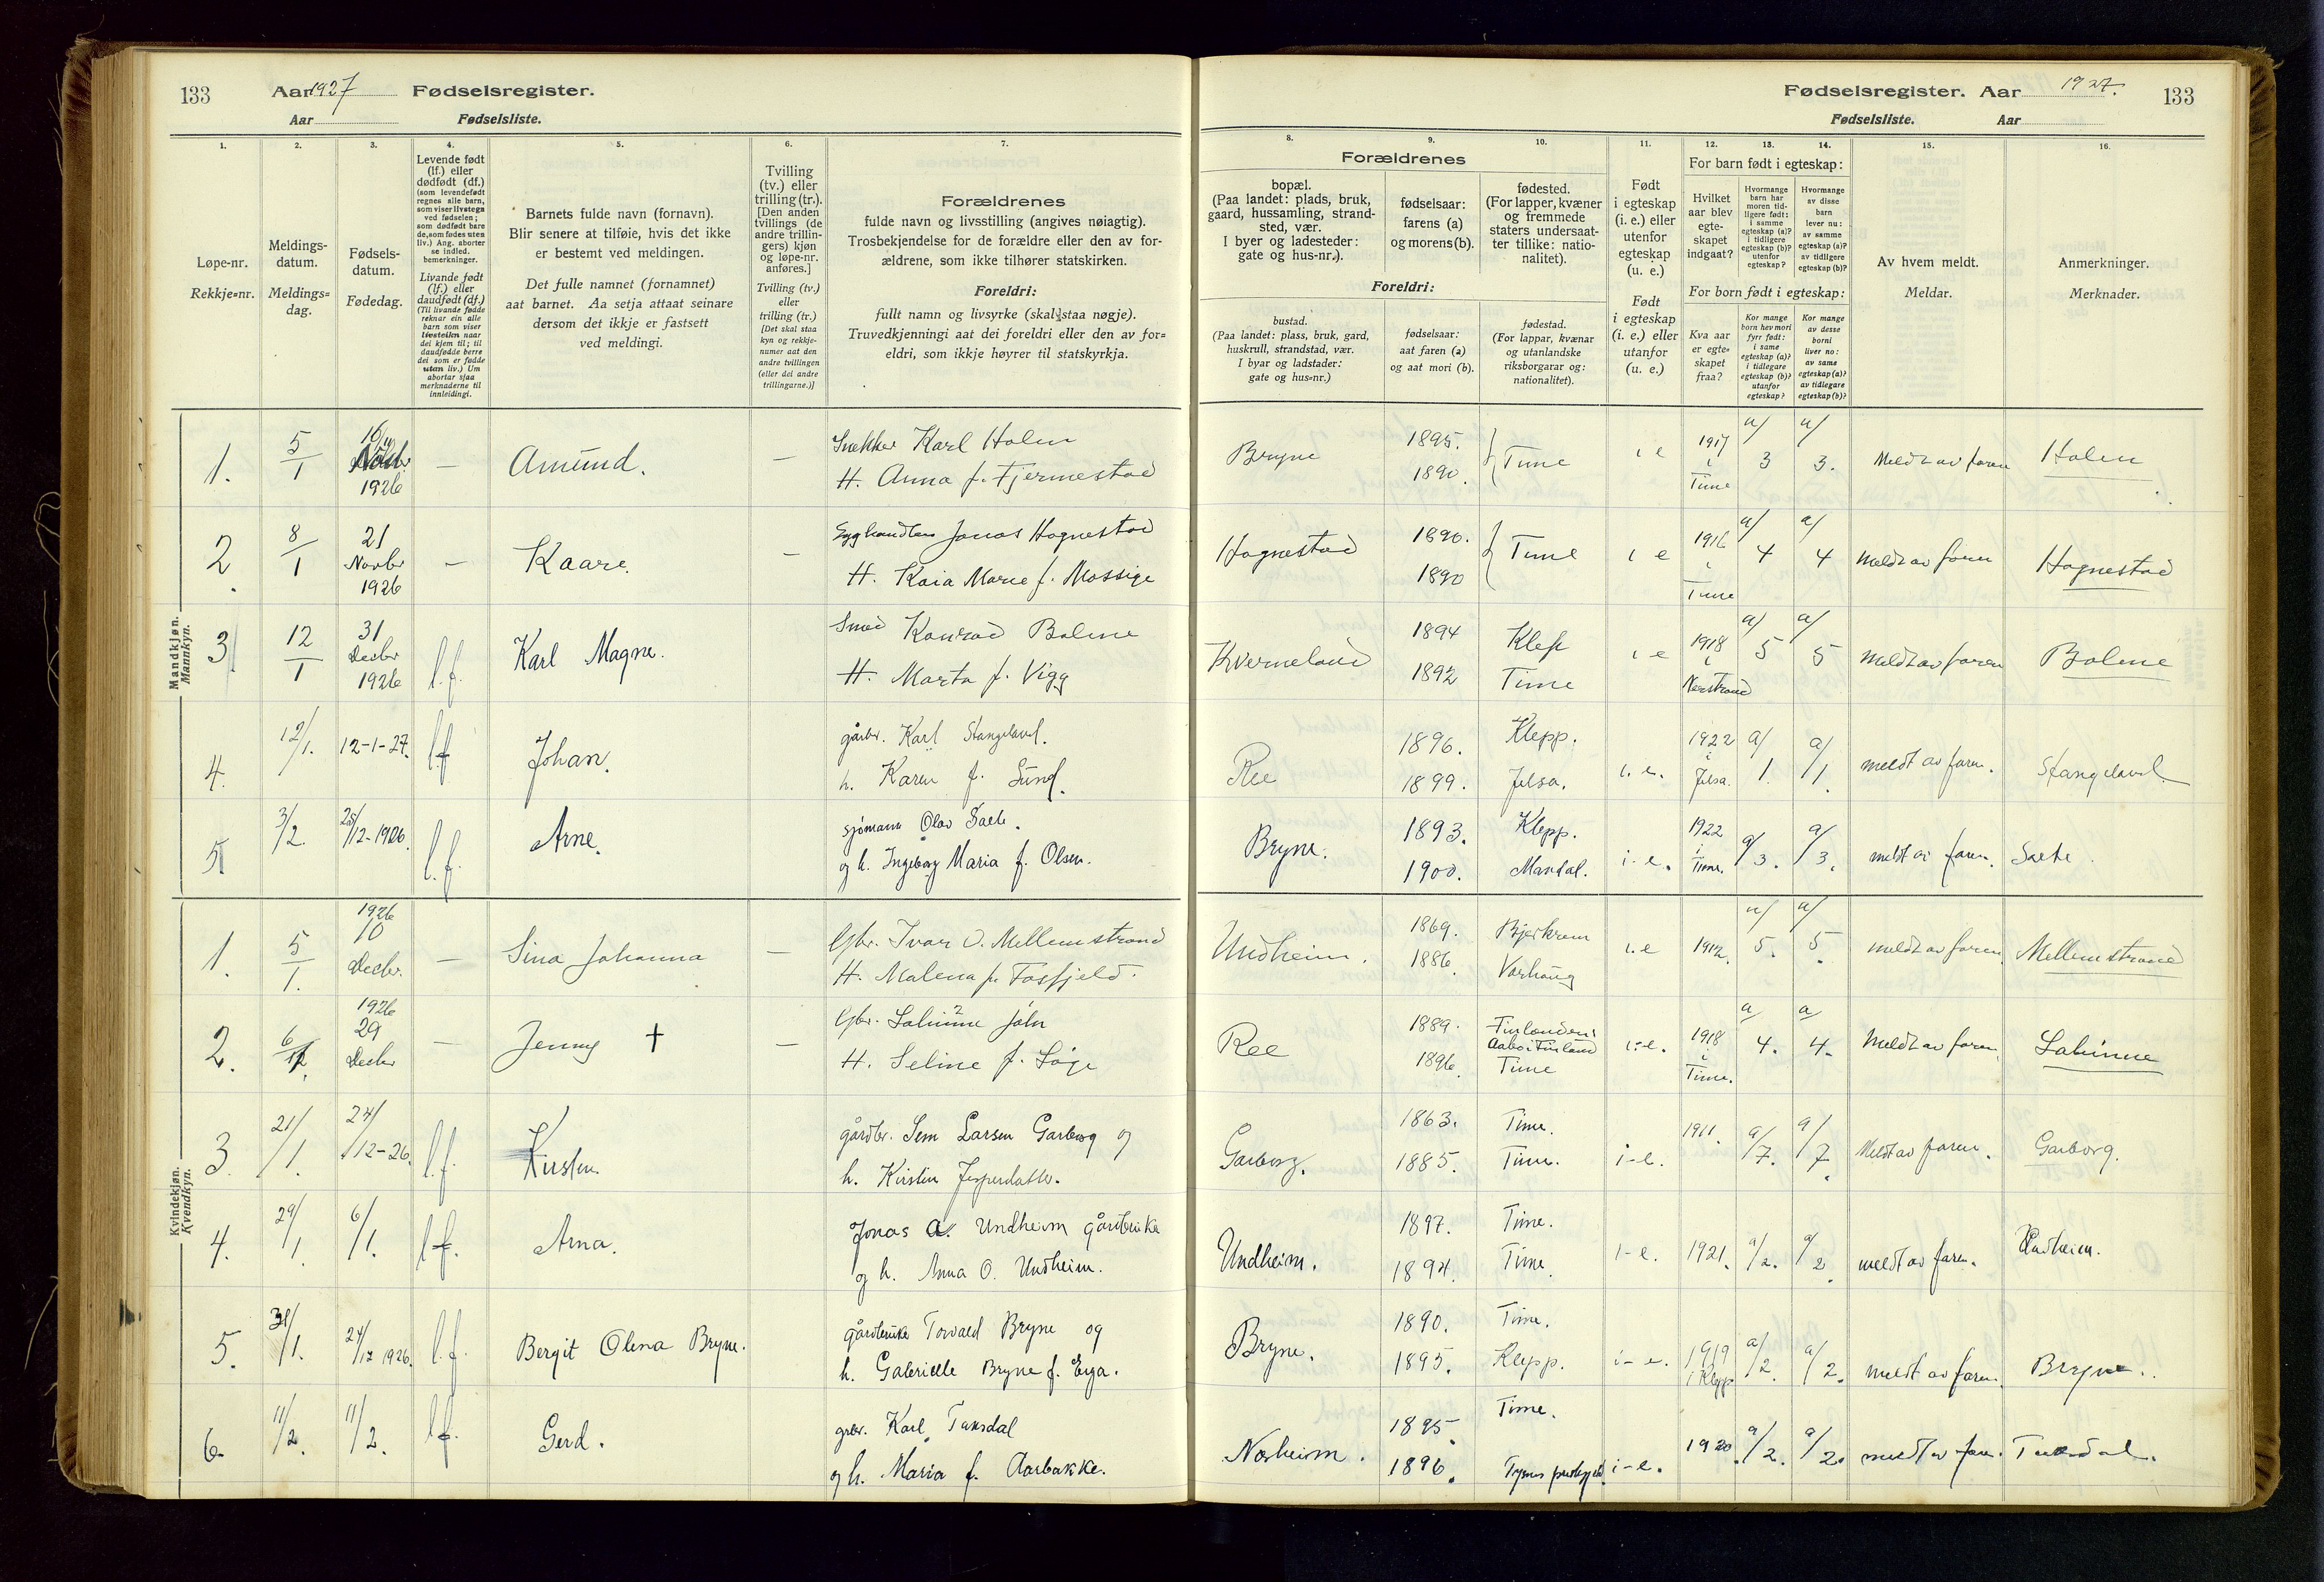 133 Aar 1927 Fødselsregister.
Aar Fødselsliste.
Fødselsregister. Aar 1927. 133
Fødselsliste. Aar
1. 2. 3. 4. 5. 6. 7. 8. 9. 10. 11. 12. 13. 14. 15. 16.
Løpe-nr.
Rekkje-nr.
Meldings-
datum.
Meldings-
dag.
Fødsels-
datum.
Fødedag.
Levende født
(lf.) eller
dødfødt (df.)
(som levendefødt
regnes alle barn,
som viser livstegn
ved fødselen;
som dødfødt bare
de, som fødes uten
liv.) Ang. aborter
se indled.
bemerkninger.
Livande født
(lf.) eller
daudfødt (df.)
(Til livande fødde
reknar ein alle
barn som viser
livsteikn naar
dei kjem til; til
daudfødde berre
dei som er fødde
utan liv.) Um
abortar sjaa
merknaderne til
innleidingi.
Barnets fulde navn (fornavn).
Blir senere at tilføie, hvis det ikke
er bestemt ved meldingen.
Det fulle namnet (fornamnet)
aat barnet. Aa setja attaat seinare
dersom det ikkje er fastsett
ved meldingi.
Tvilling
(tv.) eller
trilling (tr.).
[Den anden
tvillings (de
andre trillin-
gers) kjøn
og løpe-nr.
anføres.]
Tvilling (tv.)
eller
trilling (tr.)
[Det skal staa
kyn og rekkje-
numer aat den
andre tvillingen
(eller dei andre
trillingarne.)]
Forældrenes
fulde navn og livsstilling (angives nøiagtig).
Trosbekjendelse for de forældre eller den av for-
ældrene, som ikke tilhører statskirken.
Foreldri:
fullt namn og livsyrke (skal staa nøgje).
Truvedkjenningi aat dei foreldri eller den av for-
eldri, som ikkje høyrer til statskyrkja.
Forældrenes
bopæl.
(Paa landet: plads, bruk,
gaard, hussamling, strand-
sted, vær.
I byer og ladesteder:
gate og hus-nr.).
fødselsaar:
farens (a)
og morens (b).
fødested.
(For lapper, kvæner
og fremmede
staters undersaat-
ter tillike: natio-
nalitet).
Foreldri:
bustad.
(Paa landet: plass, bruk, gard,
huskrull, strandstad, vær.
I byar og ladstader:
gate og hus-nr.)
fødselsaar:
aat faren (a)
og aat mori (b).
fødestad.
(For lappar, kvænar
og utanlandske
riksborgarar og:
nationalitet).
Født
i egteskap
(i. e.) eller
utenfor
egteskap
(u. e.)
Født
i egteskap
(i. e.) eller
utanfor
(u. e.)
For barn født i egteskap:
Hvilket
aar blev
egte-
skapet
indgaat?
Hvormange
barn har
moren tid-
ligere født:
i samme
egteskap (a)?
i tidligere
egteskap (b)?
utenfor
egteskap?
Hvormange
av disse
barn
lever nu:
av samme
egteskap (a)?
av tidligere
egteskap (b)?
For born født i egteskap:
Kva aar
er egte-
skapet
fraa?
Kor mange
born hev mori
fyrr født:
i same
egteskap (a)?
i tidlegare
egteskap (b)?
utanfor
egteskap?
Kor mange
av desse
borni
liver no:
av same
egteskap (a)?
av tidlegare
egteskap (b)?
Av hvem meldt.
Meldar.
Anmerkninger.
Merknader.
Mandkjøn.
Mannkyn.
1. 5/1 1926 — Amund. — Snekker Karl Holen
H. Anna f. Fjermestad
Bryne 1895. 1890. Time i e 1917 i Time a/ 3 a/ 3. Meldt av faren Holen
2. 8/1 21 Novbr 1926 — Kaare. — Jonas Hognestad
H. Kaia Marie f. Mossige
Hognestad 1890. 1890 Time i e 1916 i Time a/ 4 a/ 4 Meldt av faren Hognestad
3 12/1 31 Decbr 1926 l.f. Karl Magne. Smed Konrad Bolme
H. Marta f. Vigg
Kverneland 1894 1892 Klep Time i e 1918 i Nerstrand a/ 5 a/ 5 Meldt av faren Bolme
4. 12/1. 12-1-27. l.f. Johan. gårbr. Karl Stangeland.
h. Karen f. Sund.
Ree 1896. 1899. Klepp. Jelsa. i. e. 1922 i Jelsa. a/1. a/1. meldt av faren. Stangeland.
5 3/2. 12-1926. l.f. Arne. sjømann Olav Saele.
og h. Ingeborg Maria f. Olsen.
Bryne. 1893. 1900. Klepp. Mandal. i-e. 1922 i Time. a/3. a/3. meldt av faren. Saele.
Kvindekjøn.
Kvendkyn.
1. 5/1. 1926 10 Decbr. — Sina Johanna — Gbr. Ivar O. Mellemstrand
H. Malena f. Fosfjeld.
Undheim. 1869. 1886. Bjerkreim Varhaug i. e 1912. a/ 5. a/ 5. meldt av faren. Mellemstrand
2. 1926 29 Decbr — Jenny † —
H. Seline f. Løge
Ree 1889. 1896. Finlender Aabo i Finland Time i-e. 1918 i Time. a 4. a 4. Meldt av faren.
3. 21/1. 24/12-26. l.f. Kirsten. gårdbr. Sem Larsen Garborg og
h. Kirsten Jespersdatter.
Garborg. 1863. 1885. Time. Time. i-e. 1911. a/7. a/7. Meldt av faren. Garborg.
4. 29/1. 6/1. l.f. Arna. Jonas A. Undheim gårdbruker
og h. Anna O. Undheim.
Undheim. 1897. 1894. Time. Time. i-e. 1921. a/2. a/2. meldt av faren. Undheim.
5. 31/1. 24/12 1926. l.f. Bergit Olena Bryne. gårdbruker Torvald Bryne og
h. Gabrielle Bryne f. Erga.
Bryne. 1890. 1895. Time. Klepp. i-e. 1919 i Klepp a/2. a/2. meldt av faren. Bryne.
6. 11/2. 11/2. l.f. Gerd. grbr. Karl Taksdal
og h. Maria f. Aarbakke.
Norheim. 1895. 1896. Time. Tysnes i-e. 1920. a/2. a/2. meldt av faren.